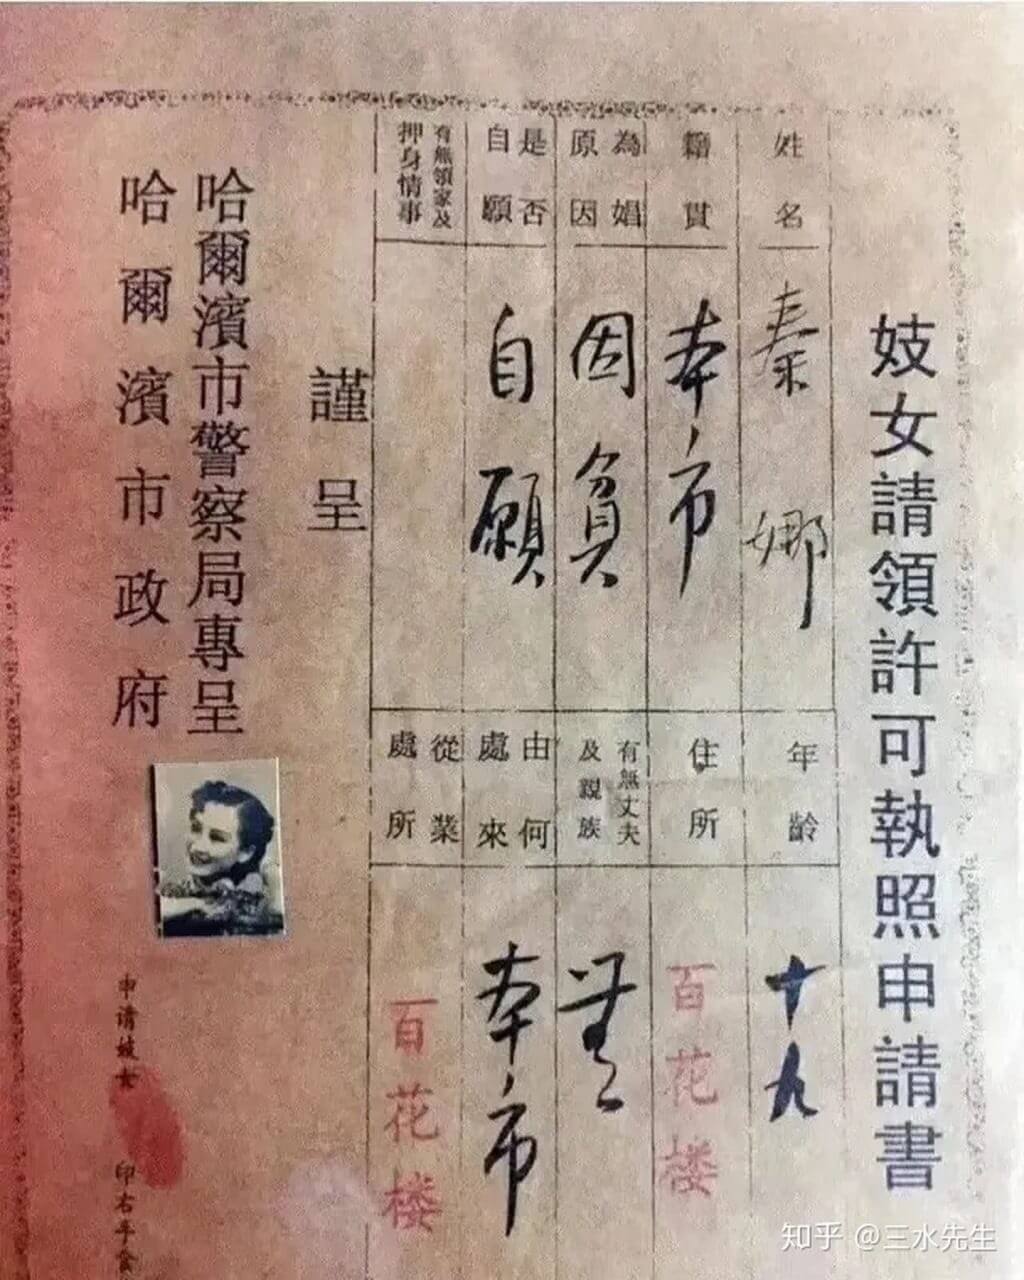 妓女請領許可執照申請書
姓名
秦娜
年齡
十九
籍貫
本市
住所
百花楼
為娼原因
因貧
有無丈夫及親族
無
是否自願
自願
由何處來
本市
有無領家及押身情事
從業處所
百花楼
謹呈
哈爾濱市警察局專呈
哈爾濱市政府
申请妓女 印右手食
知乎 @三水先生